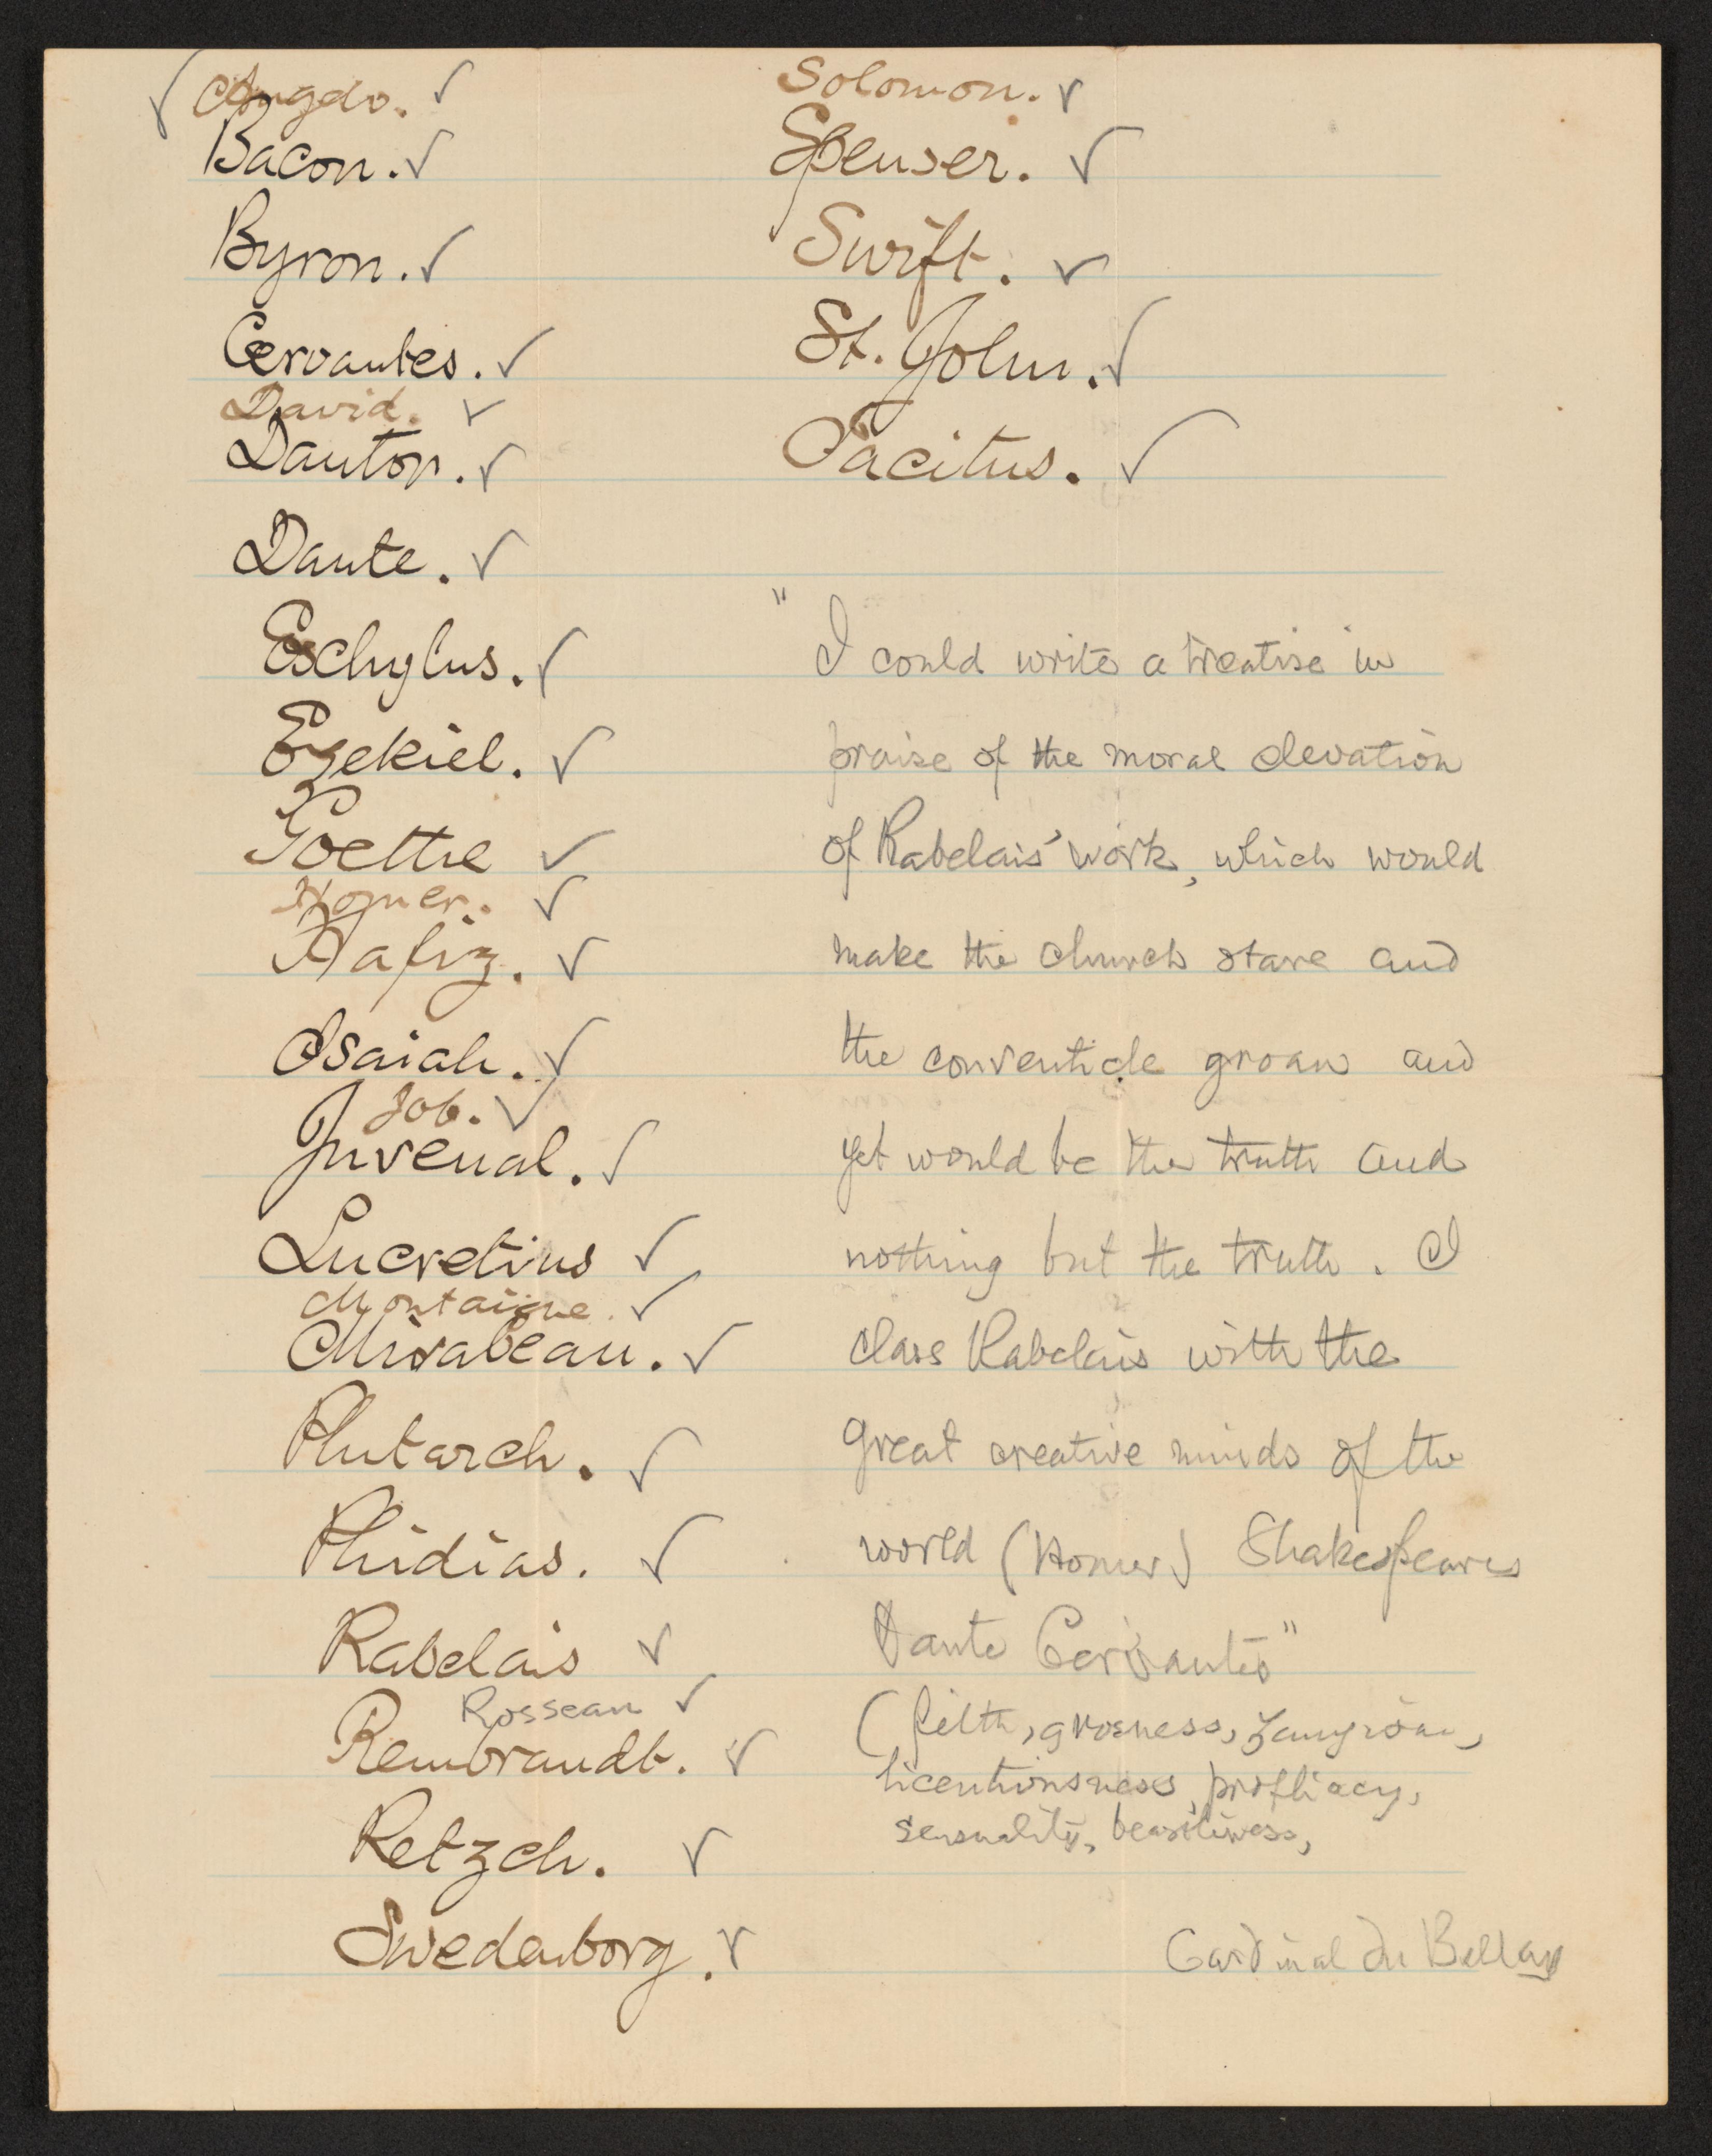 ✓ Angelo. ✓
Bacon. ✓
Byron. ✓
Cervantes. ✓
David. ✓
Danton. ✓
Dante. ✓
Eschylus. ✓
Ezekiel. ✓
Goethe ✓
Homer. ✓
Hafiz. ✓
Isaiah. ✓
Job. ✓
Juvenal. ✓
Lucretius ✓
Montaigne. ✓
Mirabeau. ✓
Plutarch. ✓
Phidias. ✓
Rabelais ✓
Rosseau ✓
Rembrandt. ✓
Retzch. ✓
Swedenborg. ✓
Solomon. ✓
Spenser. ✓
Swift. ✓
St. John. ✓
Tacitus. ✓
" I could write a treatise in
praise of the moral elevation
of Rabelais' work, which would
make the church stare and
the conventicle groan and
yet would be the truth and
nothing but the truth. I
class Rabelais with the
great creative minds of the
world (Homer) Shakespeare
Dante Cervantes"
(filth, grosness,
licentiousness, profliacy,
sensuality, beastliness,
Cardinal du Bellay